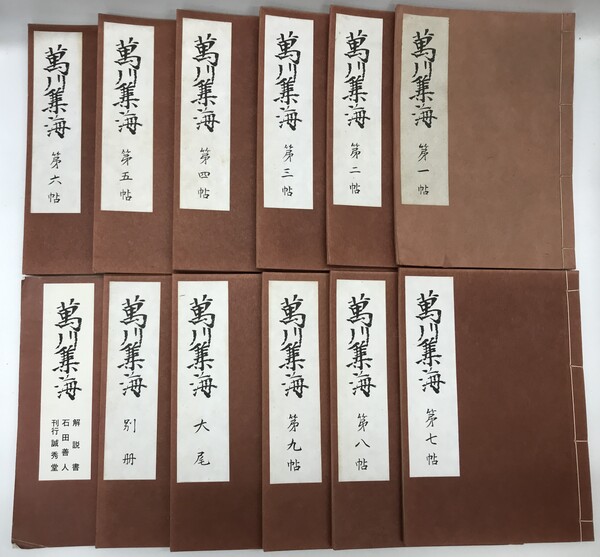 萬川集海 第一帖
萬川集海 第二帖
萬川集海 第三帖
萬川集海 第四帖
萬川集海 第五帖
萬川集海 第六帖
萬川集海 第七帖
萬川集海 第八帖
萬川集海 第九帖
萬川集海 大尾
萬川集海 別册
萬川集海
解説書
石田善人
刊行誠秀堂